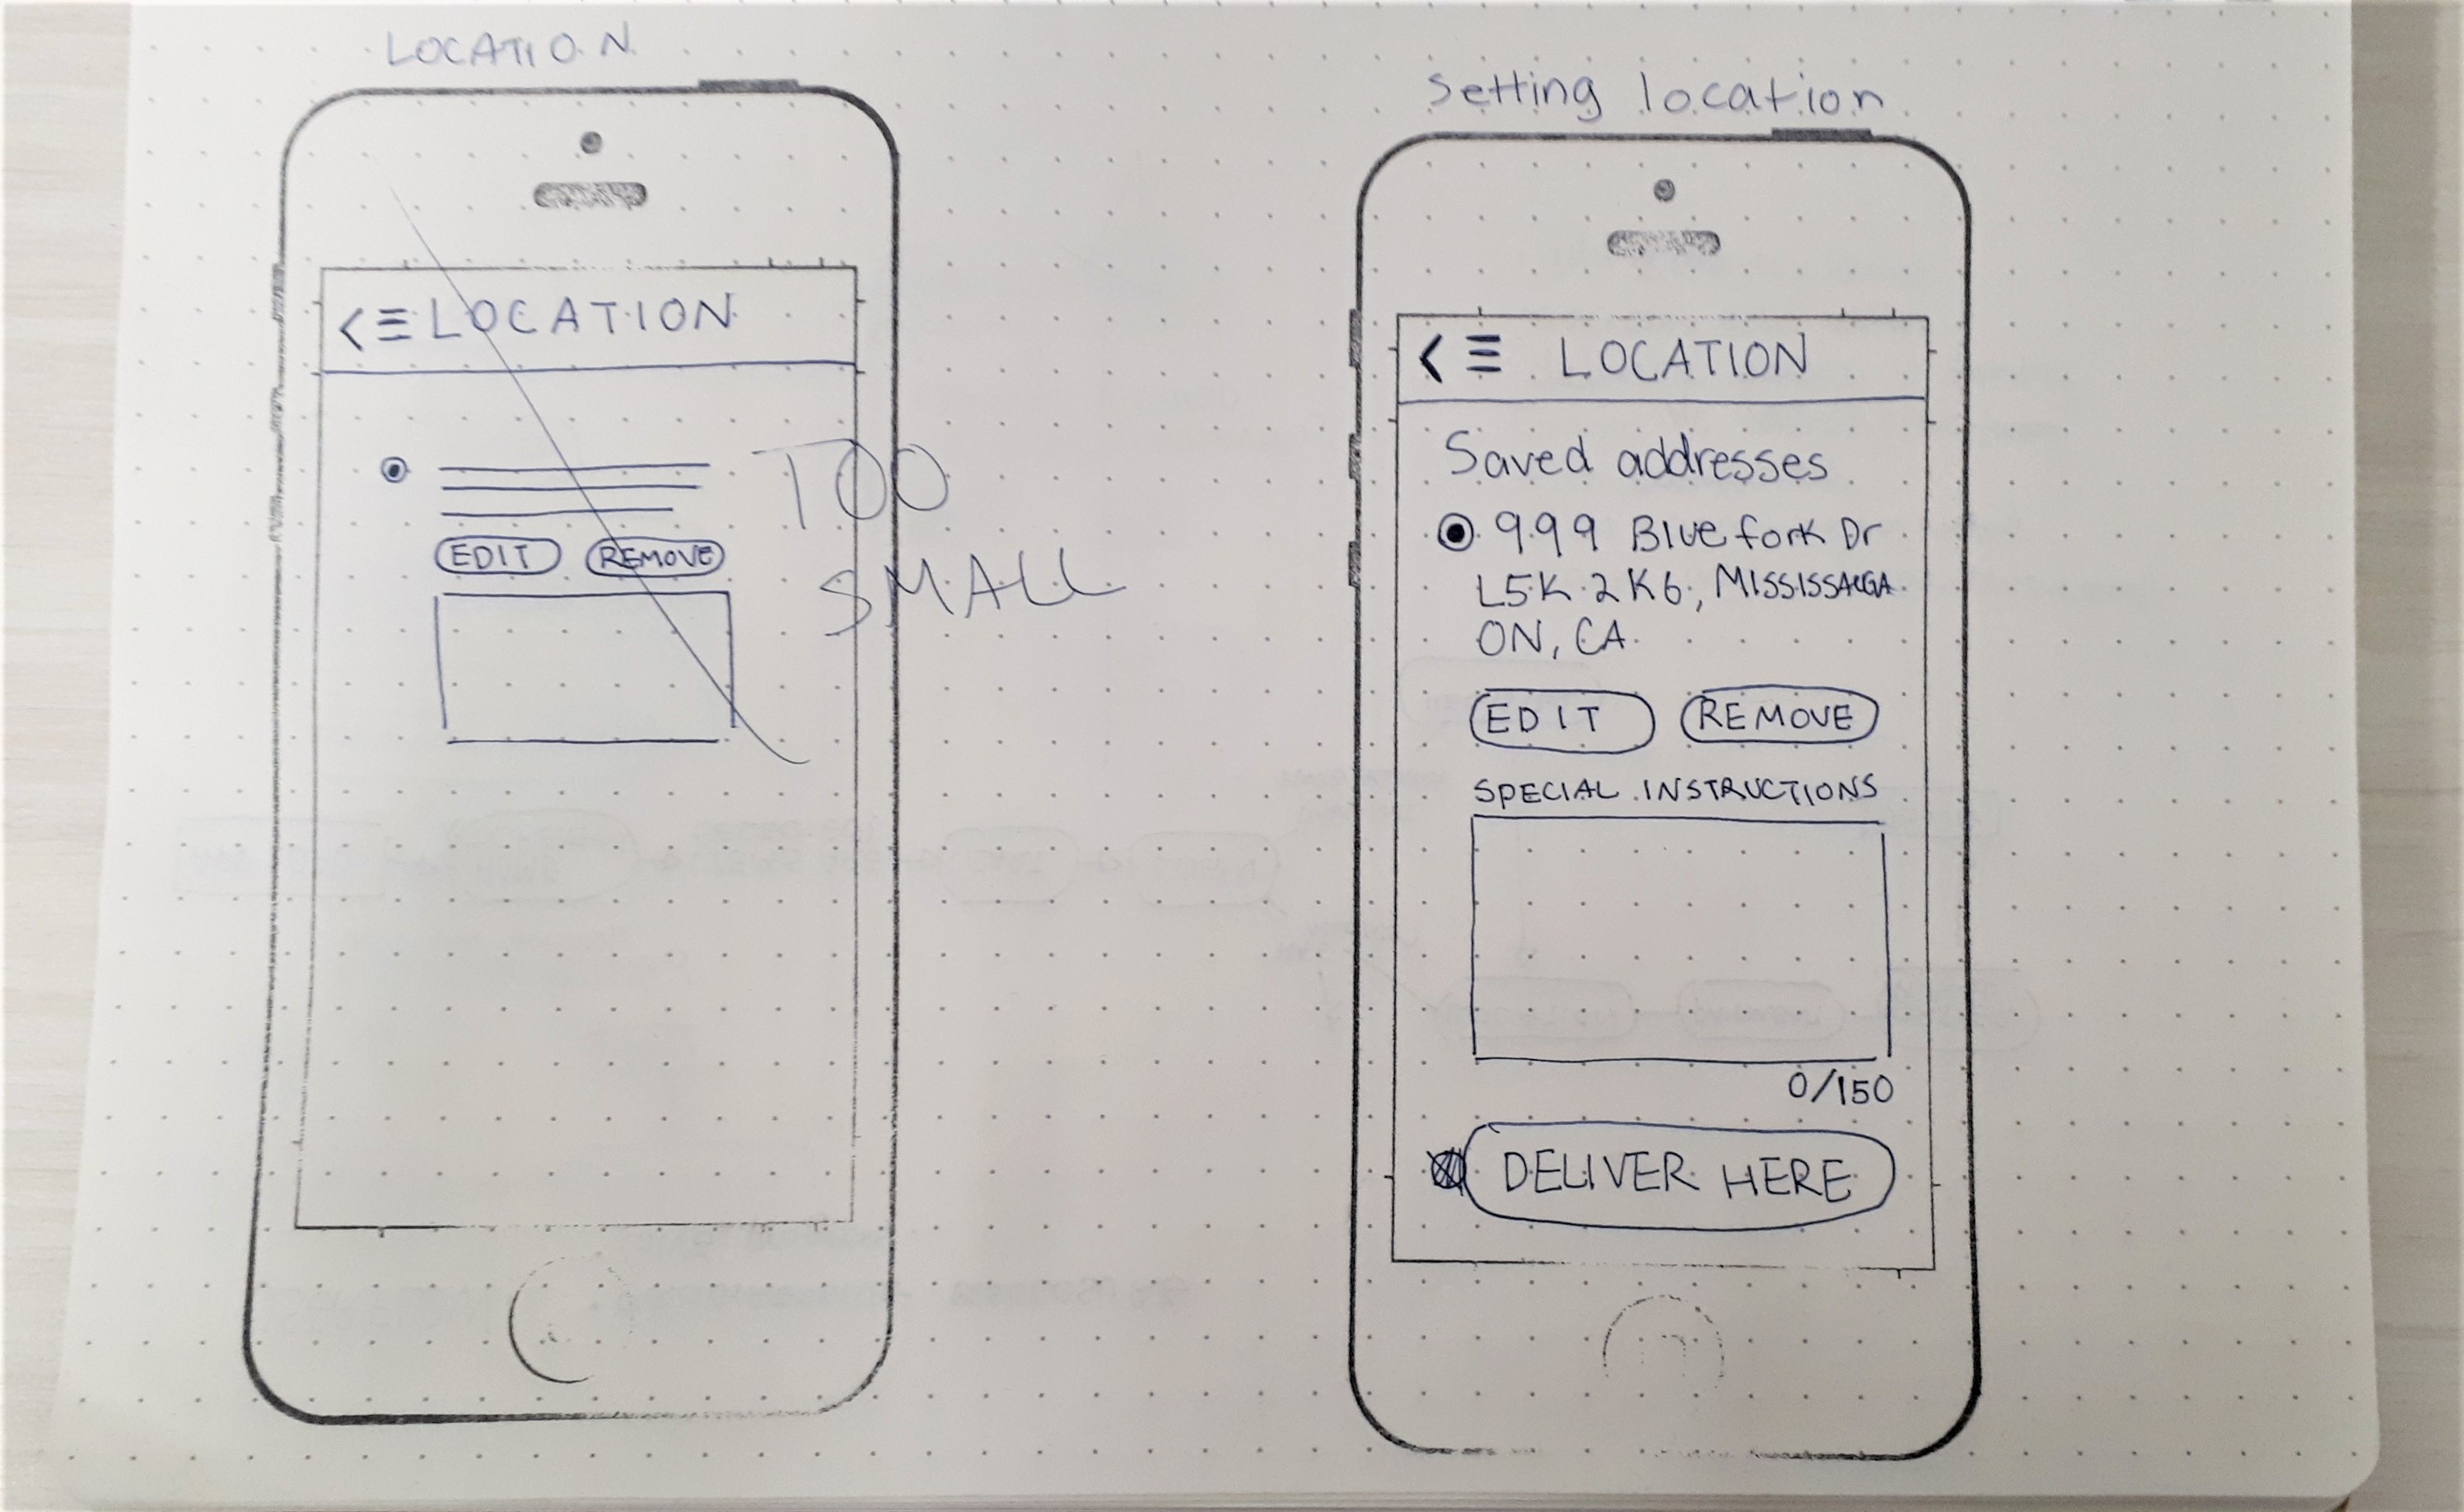 LOCATION
< ≡ LOCATION
TOO
SMALL
EDIT REMOVE
setting location
< ≡ LOCATION
Saved addresses
999 Blue fork Dr
L5K 2K6, MISSISSAUGA
ON, CA
EDIT REMOVE
SPECIAL INSTRUCTIONS
0/150
DELIVER HERE